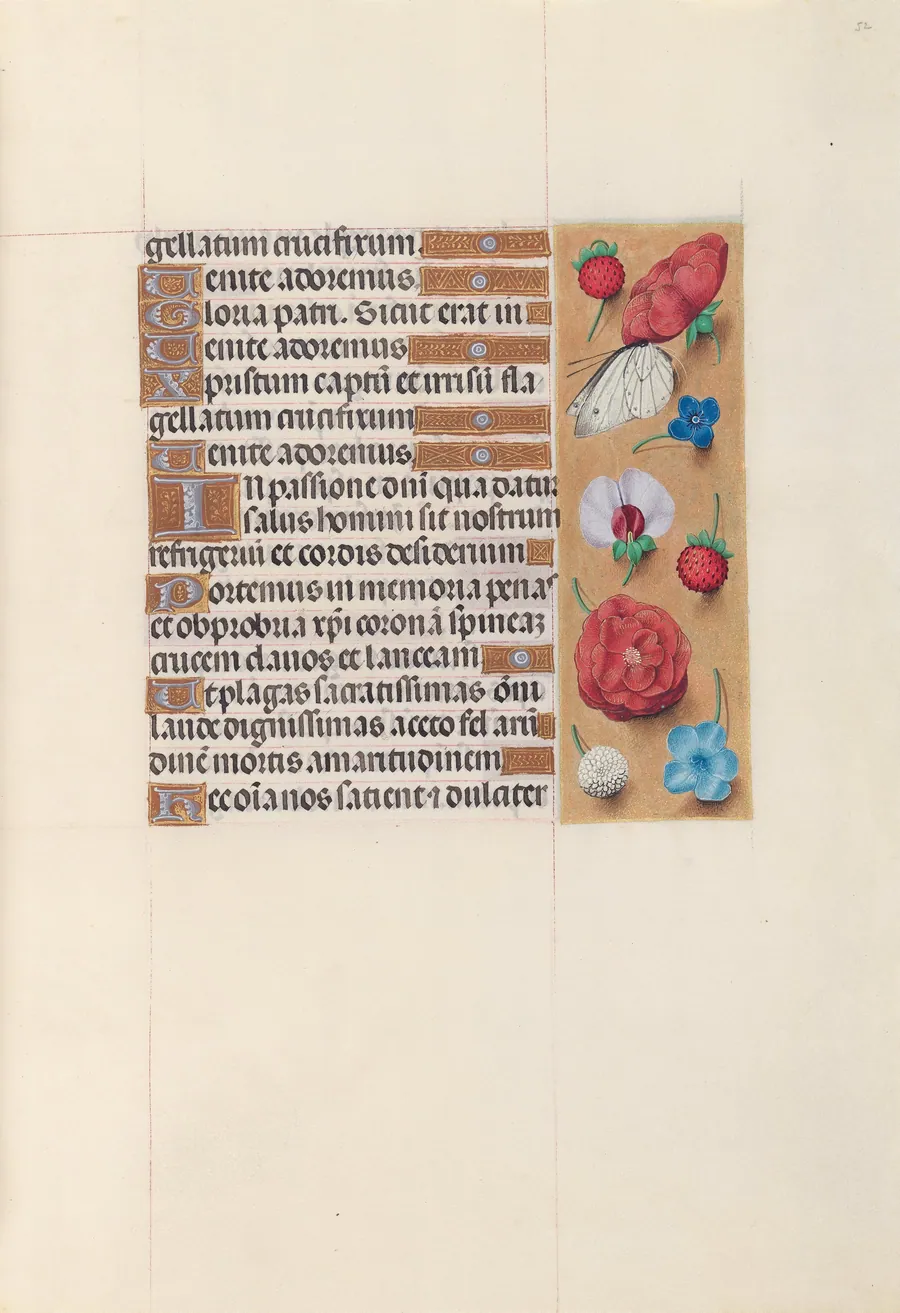 52
gellatum crucifixum.
Uenite adoremus.
Gloria patri. Sicut erat in
Uenite adoremus
Xpristum captū et irrisū fla
gellatum crucifixum
Uenite adoremus.
In passione dn̄i qua datur
salus homini sit nostrum
refrigeriū et cordis desiderium
Portemus in memoria penas
et obprobria xp̄i coronā spineaꝫ
crucem clauos et lanceam
Et plagas sacratissimas om̄i
laude dignissimas aceto fel arū
dinē mortis amaritudinem
Hec oīa nos satient ⁊ dulciter